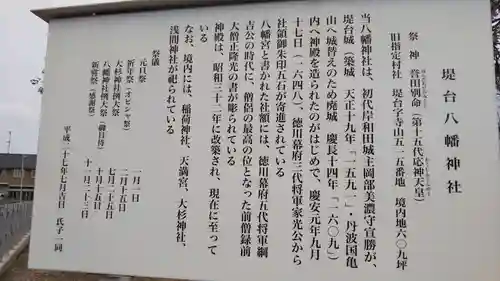 堤台八幡神社
祭神 誉田別命(第十五代応神天皇)
旧指定村社 堤台字寺山五一五番地 境内地六〇九坪
当八幡神社は、初代岸和田城主岡部美濃守宣勝が、
堤台城(築城 天正十九年「一五九一」・丹波国亀
山へ城替えのため廃城 慶長十四年「一六〇九」)
内へ神殿を造られたのがはじめで、慶安元年九月
十七日(一六四八)、徳川幕府三代将軍家光公から
社領御朱印五石が寄進されている
八幡宮と書かれた社額には、徳川幕府五代将軍綱
吉公の時代に、僧侶の最高の位となった前僧録前
大僧正隆光の書が彫られている
神殿は、昭和三十二年に改築され、現在に至って
いる
なお、境内には、稲荷神社、天満宮、大杉神社、
浅間神社が祀られている
祭儀
元旦祭 一月一日
祈年祭(オビシャ祭) 二月十五日
大杉神社例大祭 七月二十五日
八幡神社例大祭(御日待) 十月十五日
新嘗祭(感謝祭) 十一月二十三日
平成二十七年七月吉日 氏子一同